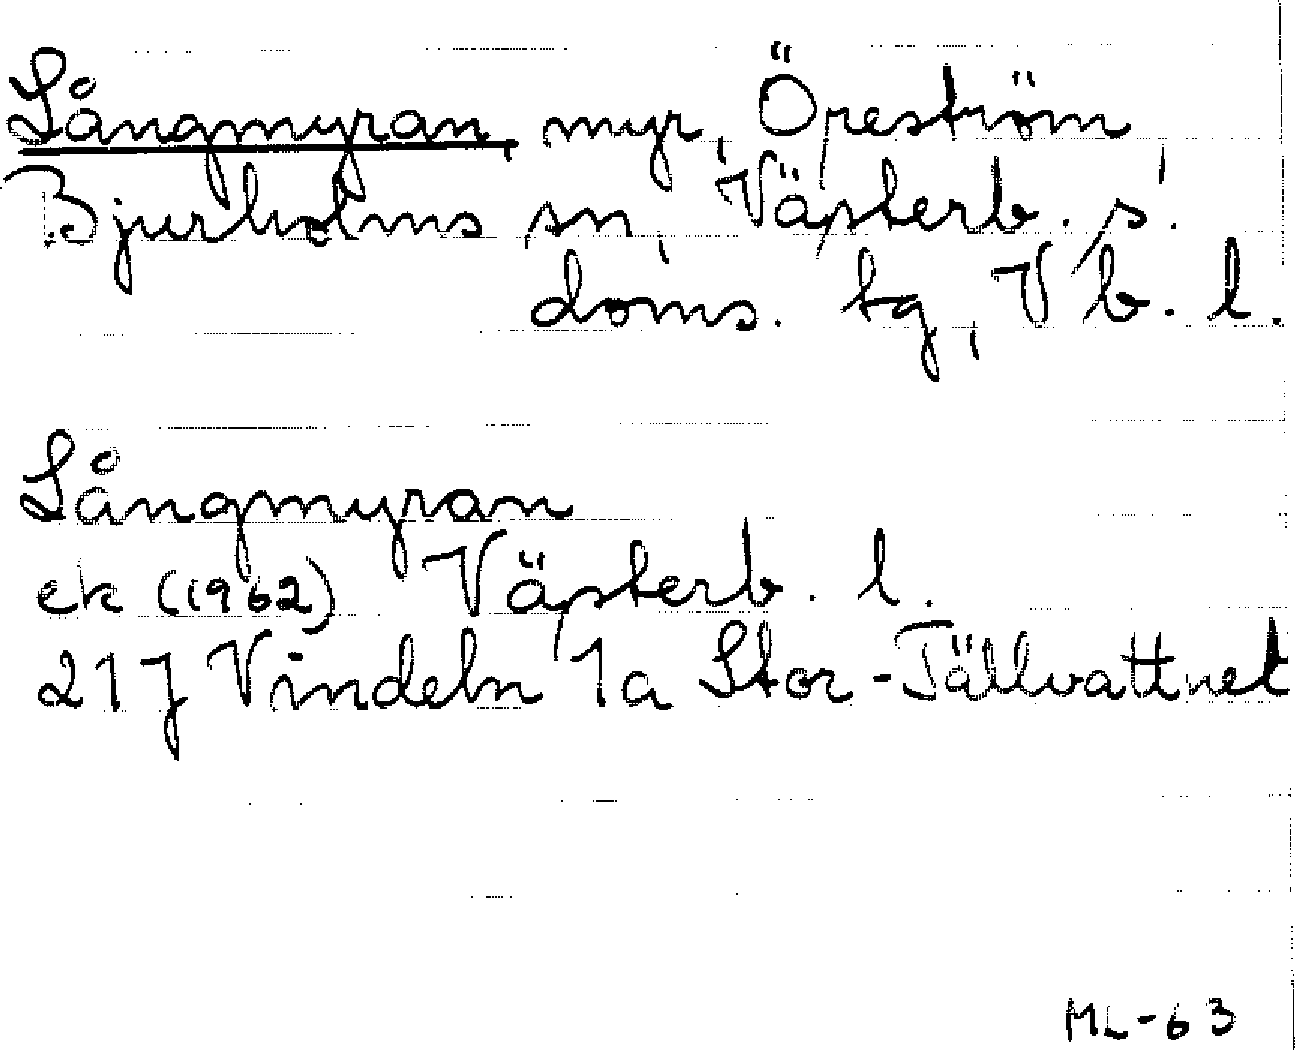 Långmyran, myr, Öreström,
Bjurholms sn, Västerb. s.
doms. tg, Vb. l.
Långmyran
ek (1962) Västerb. l.
21J Vindeln 1a Stor-Tällvattnet
ML-63